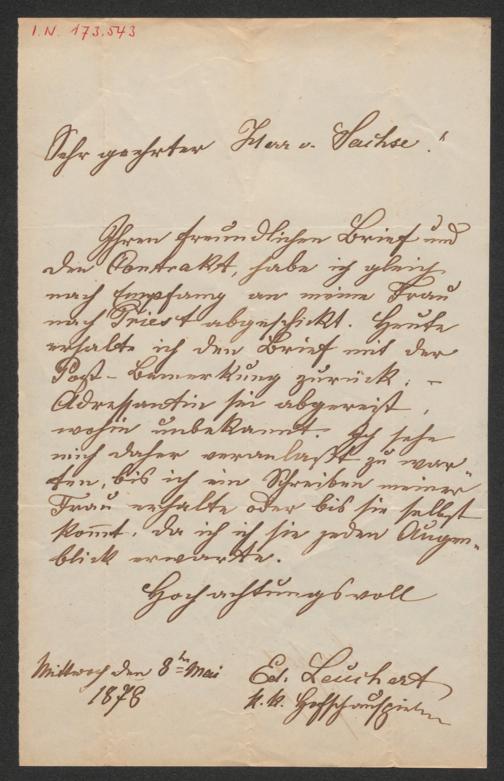 I.N. 173.543
Sehr geehrter Herr v. Sachse!
Ihren freundlichen Brief und
den Contrakt, habe ich gleich
nach Empfang an meine Frau
nach Triest abgeschickt. Heute
erhalte ich den Brief mit der
Post-Bemerkung zurück: –
Adressantin sei abgereist,
wohin unbekannt. Ich sehe
mich daher veranlaßt zu war
ten, bis ich ein Schreiben meiner
Frau erhalte oder bis sie selbst
kommt, da ich ich sie jeden Augen-
blick erwarte.
Hochachtungsvoll
Mittwoch den 8ten Mai
1878
Ed. Leuchert
k. k. Hofschauspieler